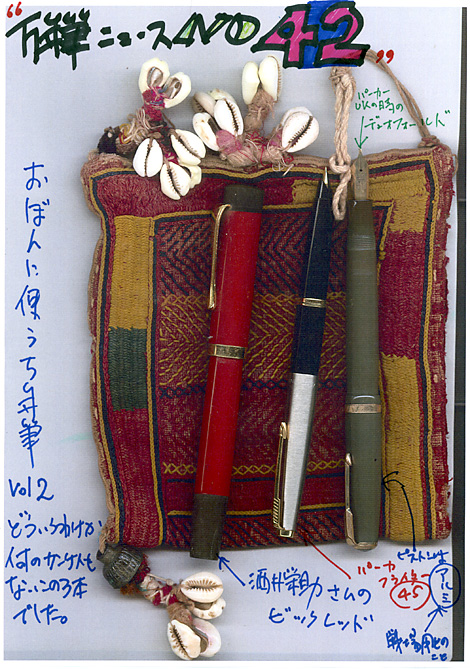 “万年筆ニュースNO42”
パーカー
UKの時の
デュオフォールド
おぼんに使う万年筆
vol2
どういうわけか
何のカンケイも
ないこの3本
でした。
酒井栄助さんの
ビックレッド
パーカー
フライター
45
アルミ
こと